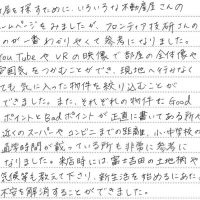 部屋を探すために、いろいろな不動産さんの
ホームページをみましたが、フロンティア技研さんの
のが一番わかりやすくて参考になりました。
YouTubeやVRの映像で部屋の全体像や
雰囲気をつかむことができ、現地へ行かなく
ても気に入った物件を絞り込むことが
できました。また、それぞれの物件にGood
ポイントとBadポイントが正直に書いてある所や
近くのスーパーやコンビニまでの距離、小・中学校の
通学時間が載っている所も非常に参考に
なりました。来店時には、富士吉田の土地柄や
気候等も教えて下さり、新生活を始めるにあたり
不安を解消することができました。